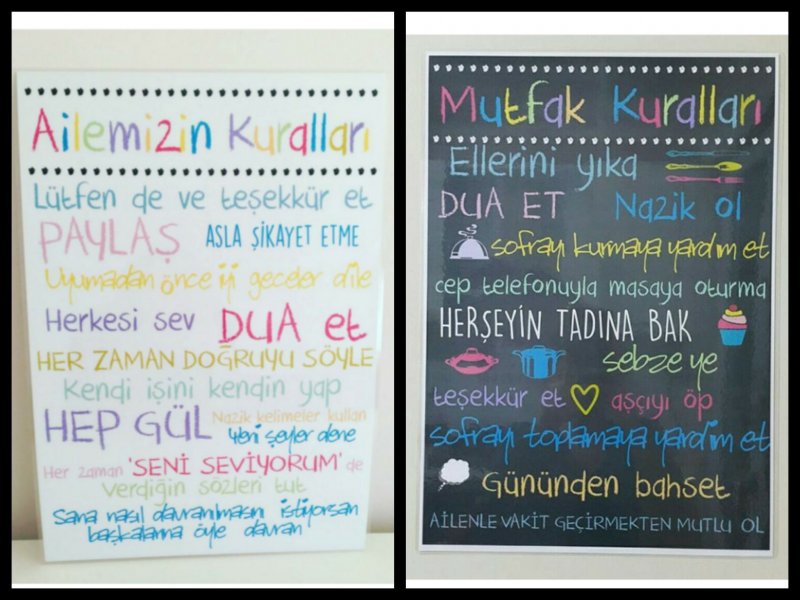 Ailemizin Kuralları
Lütfen de ve teşekkür et
PAYLAŞ ASLA ŞİKAYET ETME
Uyumadan önce iyi geceler dile
Herkesi sev DUA et
HER ZAMAN DOĞRUYU SÖYLE
Kendi işini kendin yap
HEP GÜL Nazik kelimeler kullan
Yeni şeyler dene
Her zaman 'SENİ SEVİYORUM' de
verdiğin sözleri tut
Sana nasıl davranılmasını istiyorsan
başkalarına öyle davran
Mutfak Kuralları
Ellerini yıka
DUA ET Nazik ol
sofrayı kurmaya yardım et
cep telefonuyla masaya oturma
HERŞEYİN TADINA BAK
sebze ye
teşekkür et aşçıyı öp
sofrayı toplamaya yardım et
Gününden bahset
AİLENLE VAKİT GEÇİRMEKTEN MUTLU OL